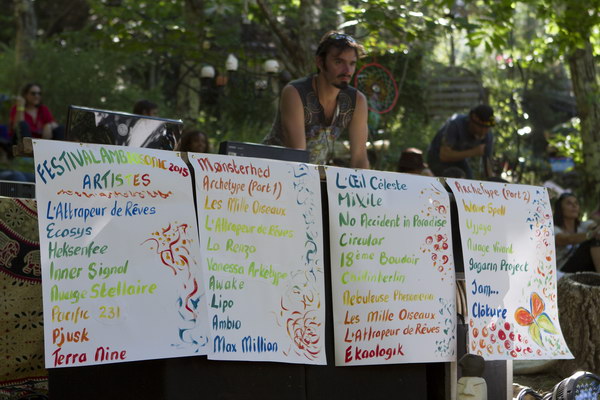 FESTIVAL AMBIOSONIC 2015
ARTISTES
L'Attrapeur de Rêves
Ecosys
Heksenfee
Inner Signal
Nuage Stellaire
Pacific 231
Pjusk
Terra Nine
Monsterhed
Archetype (Part 1)
Les Mille Oiseaux
L'Attrapeur de Rêves
La Renza
Vanessa Arkétype
Awake
Lipo
Ambio
Max Million
L'Œil Céleste
MiXile
No Accident in Paradise
Circular
18ème Boudoir
Nébuleuse
Les Mille Oiseaux
L'Attrapeur de Rêves
Ekaologik
Archetype (Part 2)
Nuage Vivant
Gagarin Project
Jam...
Clôture